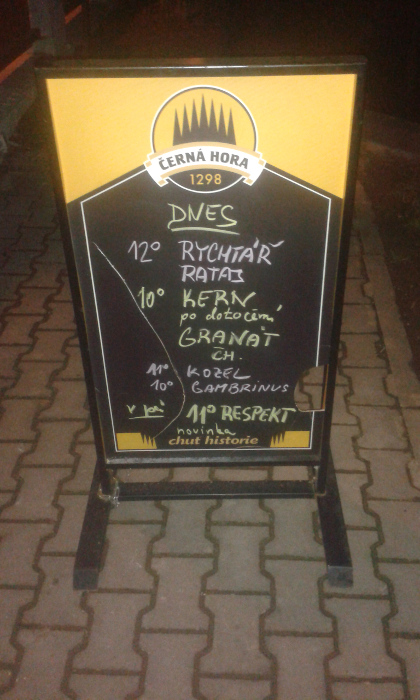 ČERNÁ HORA
1298
DNES
12° RYCHTÁŘ
RATAJ
10° KERN
po dotočení
GRANÁT
ČH.
11° KOZEL
10° GAMBRINUS
11° RESPEKT
novinka
chut historie